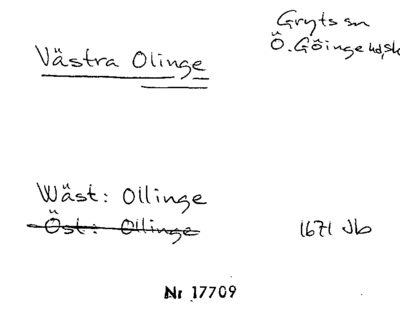 Västra Olinge
Gryts sn
Ö. Göinge hd, Sk
Wäst: Ollinge
Öst: Ollinge
1671 Jb
Nr 17709